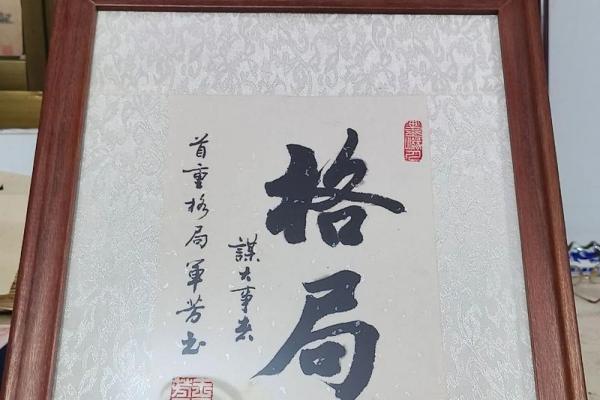 格局
謀大事者
首重格局軍芳书